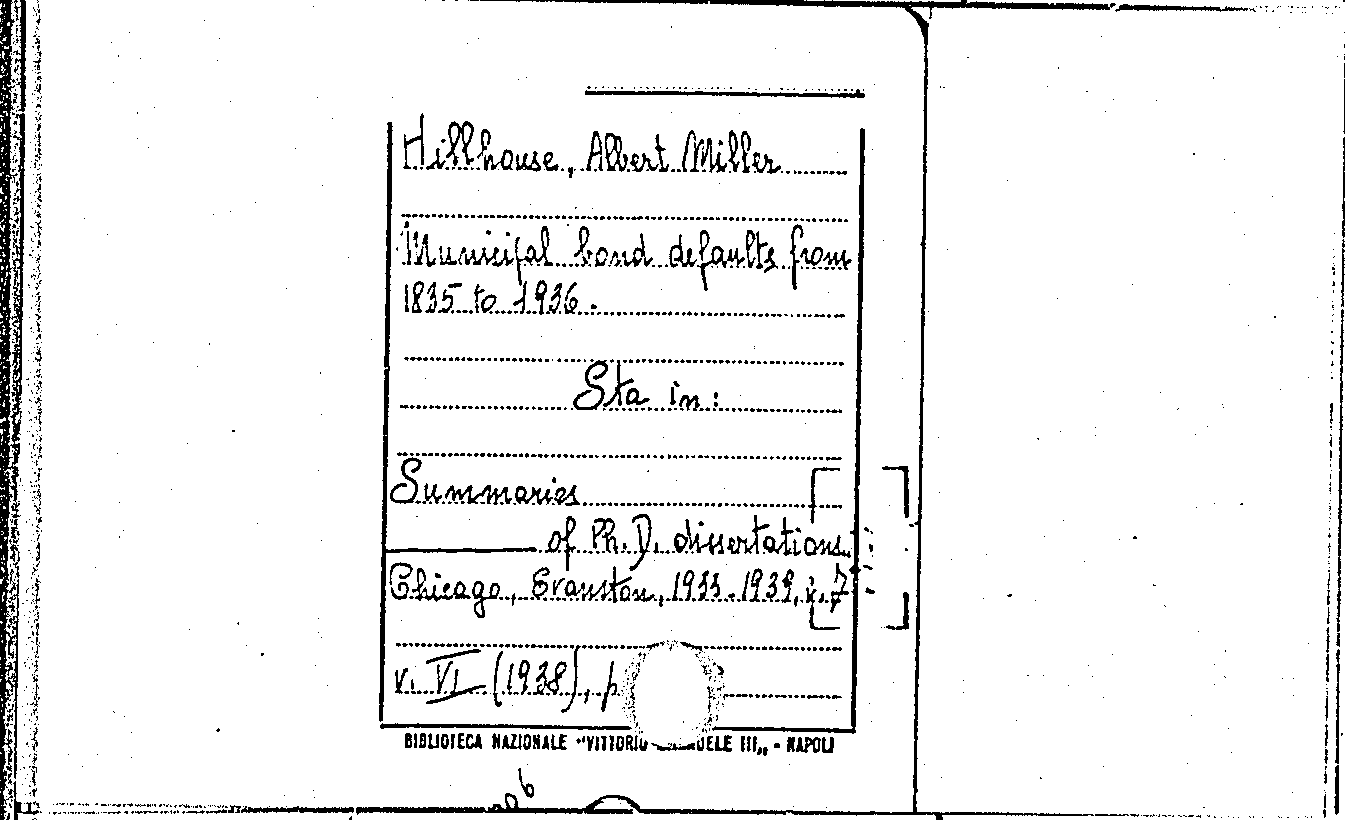 Hillhouse, Albert Miller
Municipal bond defaults from
1835 to 1936.
Sta in:
Summaries
of Ph. D. dissertations.
Chicago, Evanston, 1933-1939, v. 7
v. VI (1938), p.
BIBLIOTECA NAZIONALE "VITTORIO III„ - NAPOLI